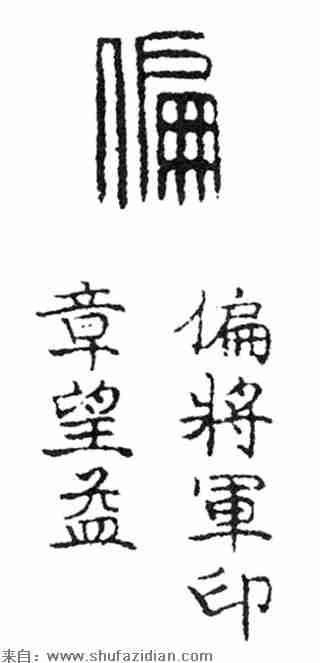 偏
偏將軍印
章望㿽
来自：www.shufazidian.com